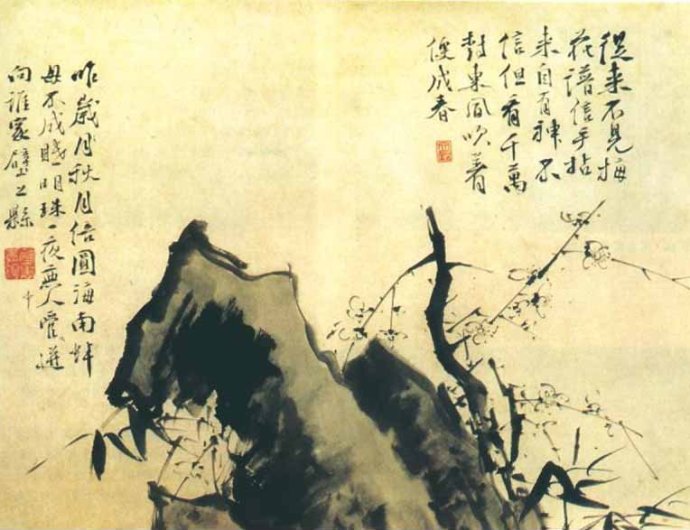 從来不見梅
花譜信手拈
来自有神不
信但看千萬
樹東風吹着
便成春
昨歲月秋月倍圓海南蚌
母不成眠明珠一夜無人管迸
向誰家壁上懸